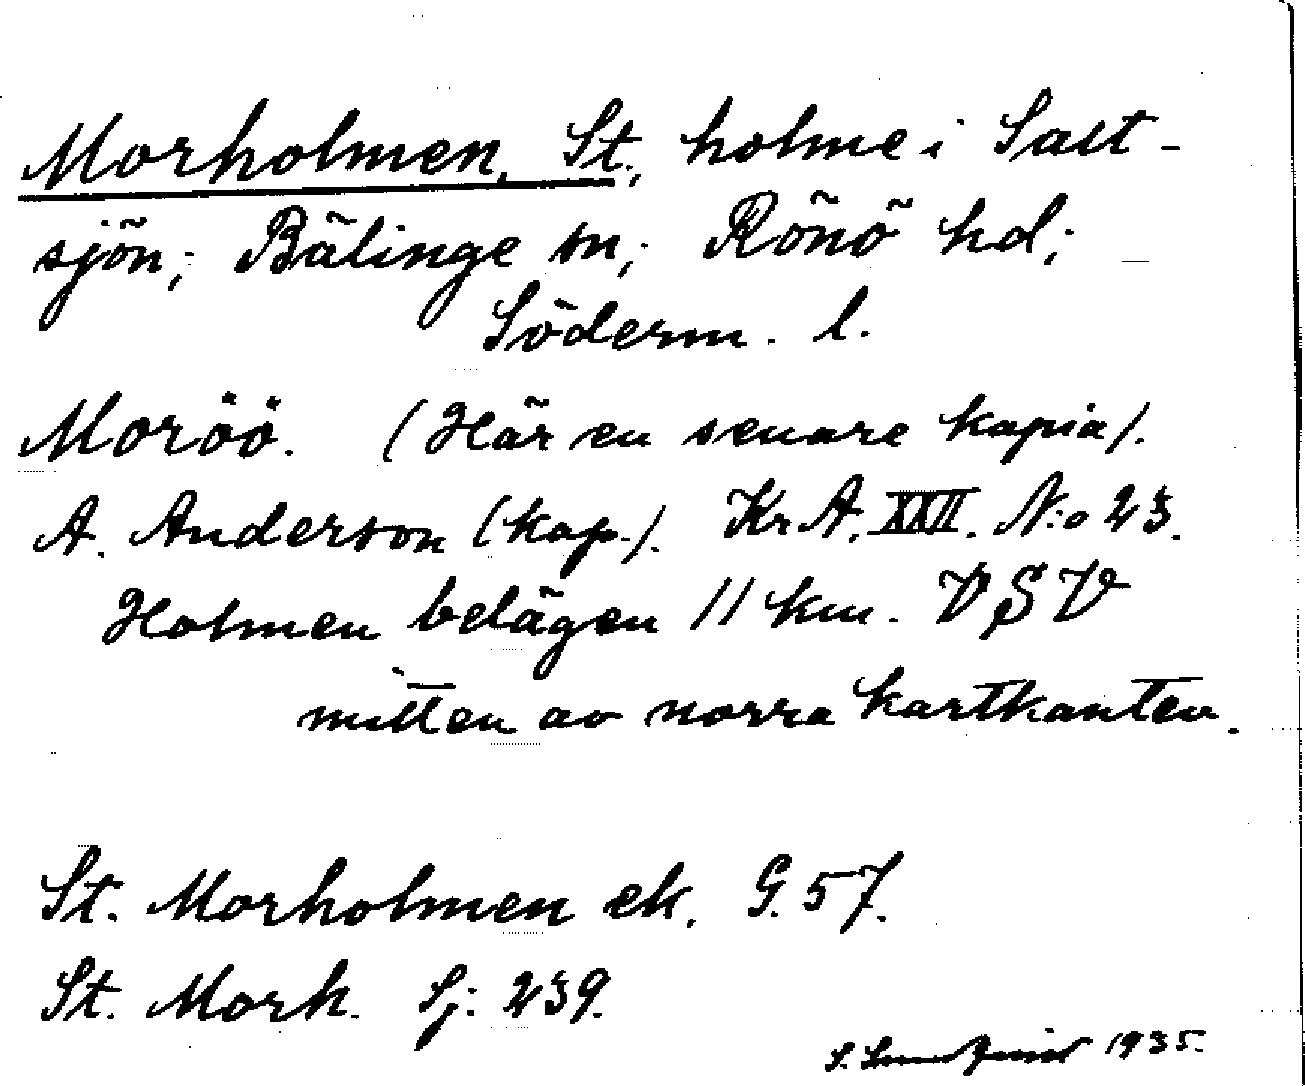 Morholmen, St., holme i Salt-
sjön; Bälinge sn; Rönö hd;
Söderm. l.
Moröö. (Här en senare kopia).
A. Anderson (kop.). Kr.A. XXII. N:o 23.
Holmen belägen 11 km. VSV
mitten av norra kartkanten.
St. Morholmen ek. G. 57.
St. Morh. Sj: 239.
S. Lundquist 1935.